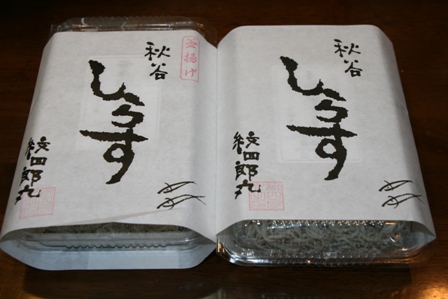 釜揚げ
秋谷
しらす
紋四郎丸
秋谷
しらす
紋四郎丸